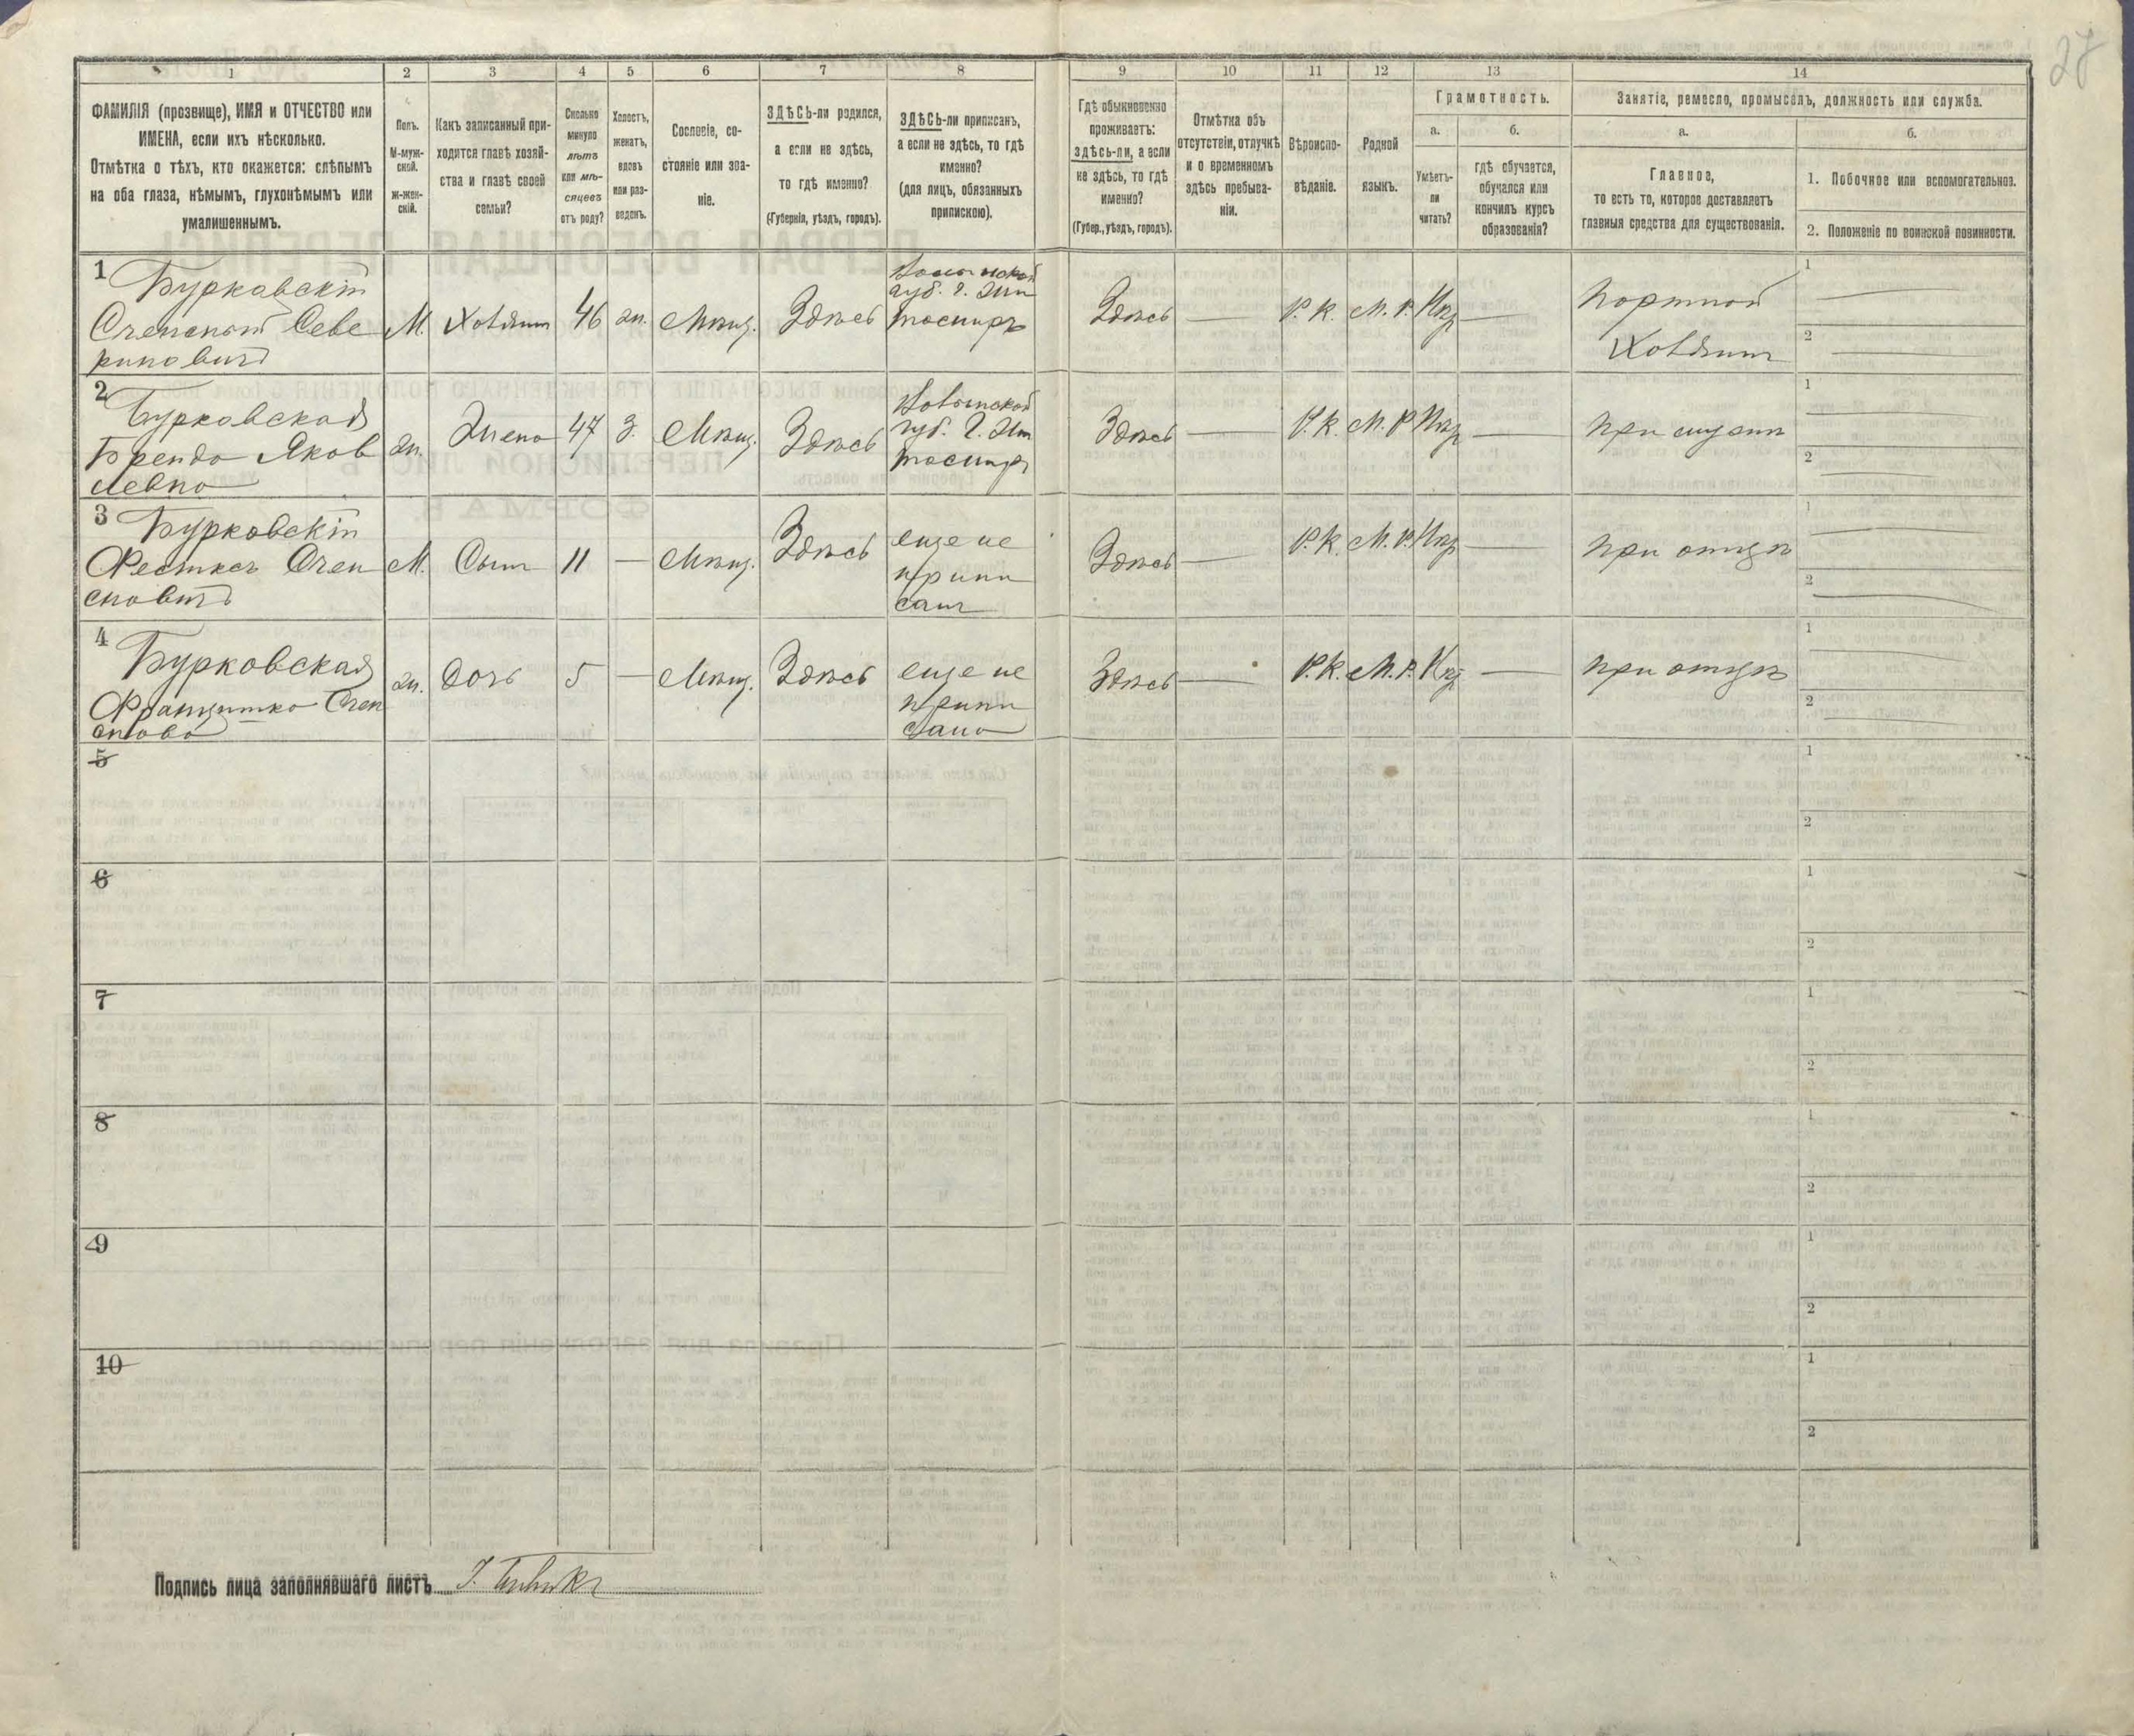 27
1 2 3 4 5 6 7 8 9 10 11 12 13 14
ФАМИЛІЯ (прозвище), ИМЯ и ОТЧЕСТВО или
ИМЕНА, если ихъ нѣсколько.
Отмѣтка о тѣхъ, кто окажется: слѣпымъ
на оба глаза, нѣмымъ, глухонѣмымъ или
умалишеннымъ.
Полъ.
М-муж-
ской.
Ж-жен-
скій.
Какъ записанный при-
ходится главѣ хозяй-
ства и главѣ своей
семьи?
Сколько
минуло
лѣтъ
или мѣ-
сяцевъ
отъ роду?
Холостъ,
женатъ,
вдовъ
или раз-
веденъ.
Сословіе, со-
стояніе или зва-
ніе.
ЗДѢСЬ-ли родился,
а если не здѣсь,
то гдѣ именно?
(Губернія, уѣздъ, городъ).
ЗДѢСЬ-ли приписанъ,
а если не здѣсь, то гдѣ
именно?
(для лицъ, обязанныхъ
припискою).
Гдѣ обыкновенно
проживаетъ:
здѣсь-ли, а если
не здѣсь, то гдѣ
именно?
(Губер., уѣздъ, городъ).
Отмѣтка объ
отсутствіи, отлучкѣ
и о временномъ
здѣсь пребыва-
ніи.
Вѣроиспо-
вѣданіе.
Родной
языкъ.
Грамотность.
а.
Умѣетъ-
ли
читать?
б.
гдѣ обучается,
обучался или
кончилъ курсъ
образованія?
Занятіе, ремесло, промыселъ, должность или служба.
а.
Главное,
то есть то, которое доставляетъ
главныя средства для существованія.
б.
1. Побочное или вспомогательное.
2. Положеніе по воинской повинности.
1 Бурковскій
Севе
риновичъ
М. Хозяинъ 46 ж. Мѣщ. Здѣсь
губ. г. Жи
томиръ
Здѣсь — Р.К. М.Р. Нѣт —
Портной
Хозяинъ
1 —
2 —
2 Бурковская
Яков
левна
ж. Жена 47 З. Мѣщ. Здѣсь
Волынской
губ. г. Жи
томиръ
Здѣсь — Р.К. М.Р. Нѣт —
При мужѣ
1 —
2 —
3 Бурковскій
М. Сынъ 11 — Мѣщ. Здѣсь
еще не
припи
санъ
Здѣсь — Р.К. М.Р. Нѣт —
При отцѣ
1 —
2 —
4 Бурковская
ж. Дочь 5 — Мѣщ. Здѣсь
еще не
припи
сана
Здѣсь — Р.К. М.Р. Нѣт —
При отцѣ
1 —
2 —
5
1
2
6
1
2
7
1
2
8
1
2
9
1
2
10
1
2
Подпись лица заполнявшаго листъ